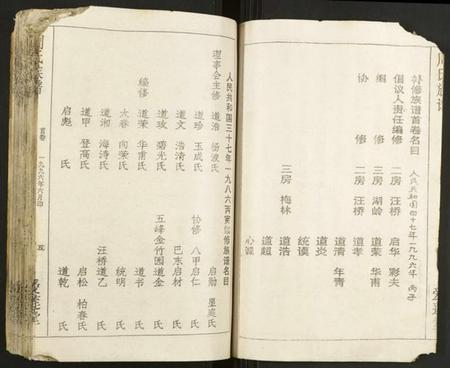 补修族谱首卷名目
人民共和国四十七年一九九六年 丙子
倡议人责任编修 二房 汪桥 启华 彩夫
编修 三房 湖岭 道荣 华甫
协修 二房 汪桥 道孝
道清 年青
道炎
统谟
三房 梅林 道浩
道超
心诚
人民共和国三十七年一九八六丙寅
修族谱名目
理事会主修 道治 杨波氏
启勋 星庭氏
道珍 玉成氏
协修 八甲启仁 氏
道文 浩清氏
已东启材 氏
道玫 碧光氏
五峰金竹园道金 氏
编修 道荣 华甫氏
道书 氏
大春 向荣氏
统明 氏
道湘 海涛氏
汪桥道乙 氏
道甲 登高氏
启松 柏春氏
启彪 氏
道乾 氏
首卷 一九九六年六月印
周氏族谱